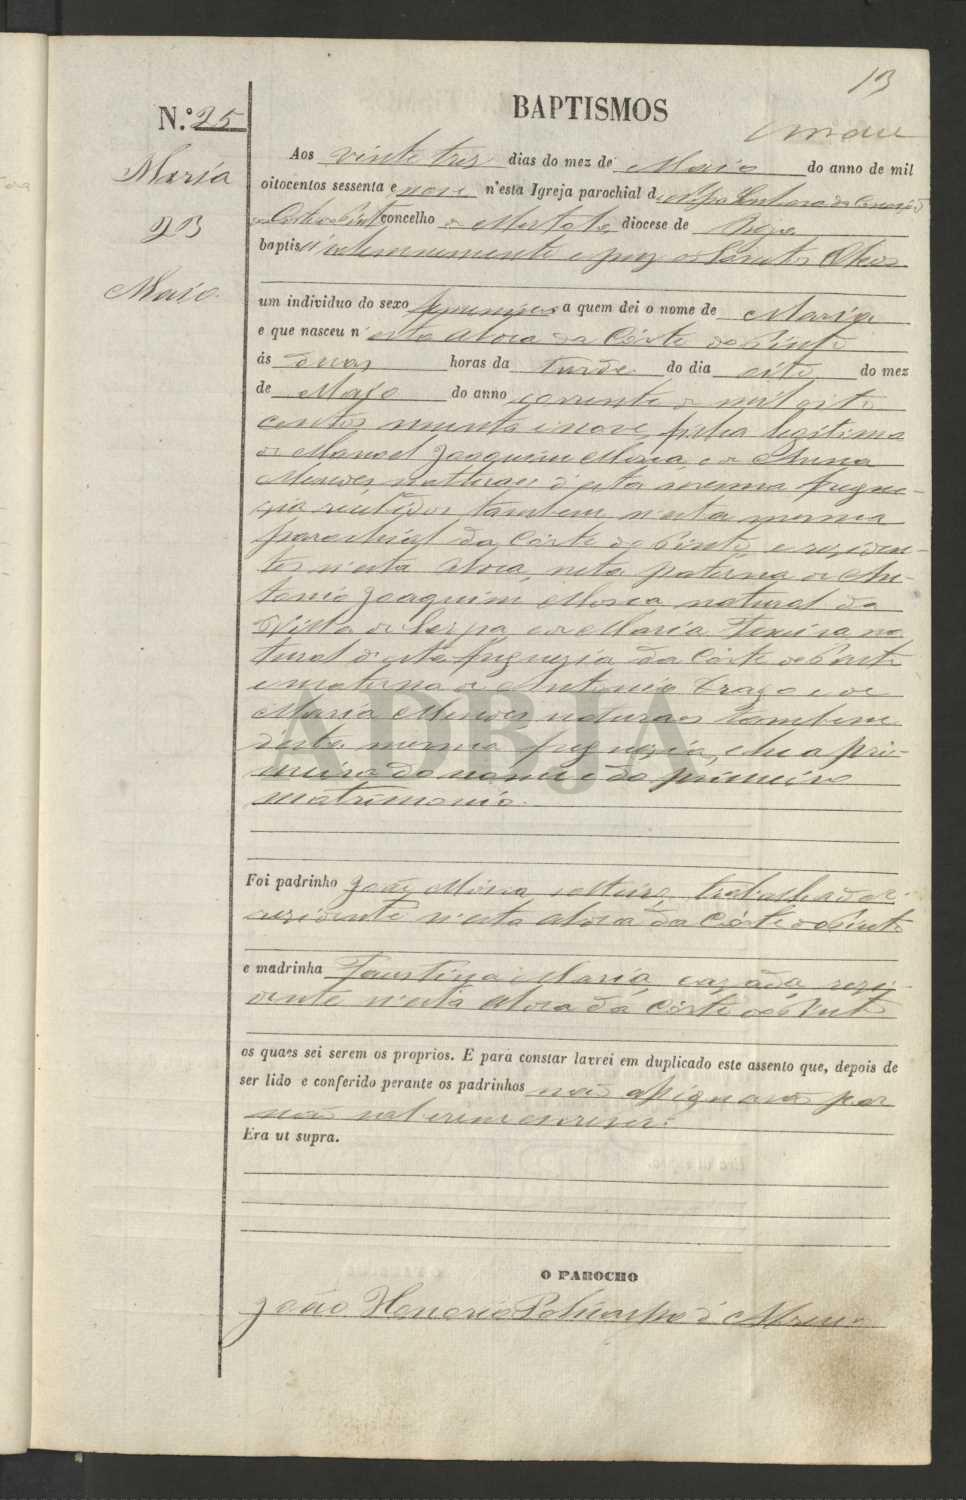 13
BAPTISMOS
N.º 25
Maria
23
Maio
Aos vinte tres dias do mez de Maio do anno de mil
oitocentos sessenta e nove n'esta Igreja parochial de Nossa Senhora da Conceição
da Corte do Pinto concelho de Mertola diocese de Beja
baptisei solemnemente e puz os Santos Oleos
um individuo do sexo femenino a quem dei o nome de Maria
e que nasceu n'esta Aldea da Côrte do Pinto
ás duas horas da tarde do dia oito do mez
de Maio do anno corrente de mil oito
centos secenta e nove, filha legitima
de Manoel Joaquim e de Anna
Mendes, natturaes d'esta mesma fregue-
zia recebidos tambem n'esta mesma
parochial da Côrte do Pinto, e reziden-
tes n'esta Aldea, neta paterna de An-
tonio Joaquim natural da
Villa de Serpa, e de Maria Teixeira na
tural d'esta freguezia da Côrte do Pinto
e materna de Antonio e de
Maria Mendes naturaes tambem
desta mesma freguezia, he a pri-
meira do nome e do primeiro
matrimonio.
ADBJA
Foi padrinho João solteiro, trabalhador
rezidente n'esta Aldea da Côrte do Pinto
e madrinha Faustina Maria, cazada rezi-
dente n'esta Aldea da Côrte do Pinto
os quaes sei serem os proprios. E para constar lavrei em duplicado este assento que, depois de
ser lido e conferido perante os padrinhos não assignarão por
não saberem escrever.
Era ut supra.
O PAROCHO
João Honorio